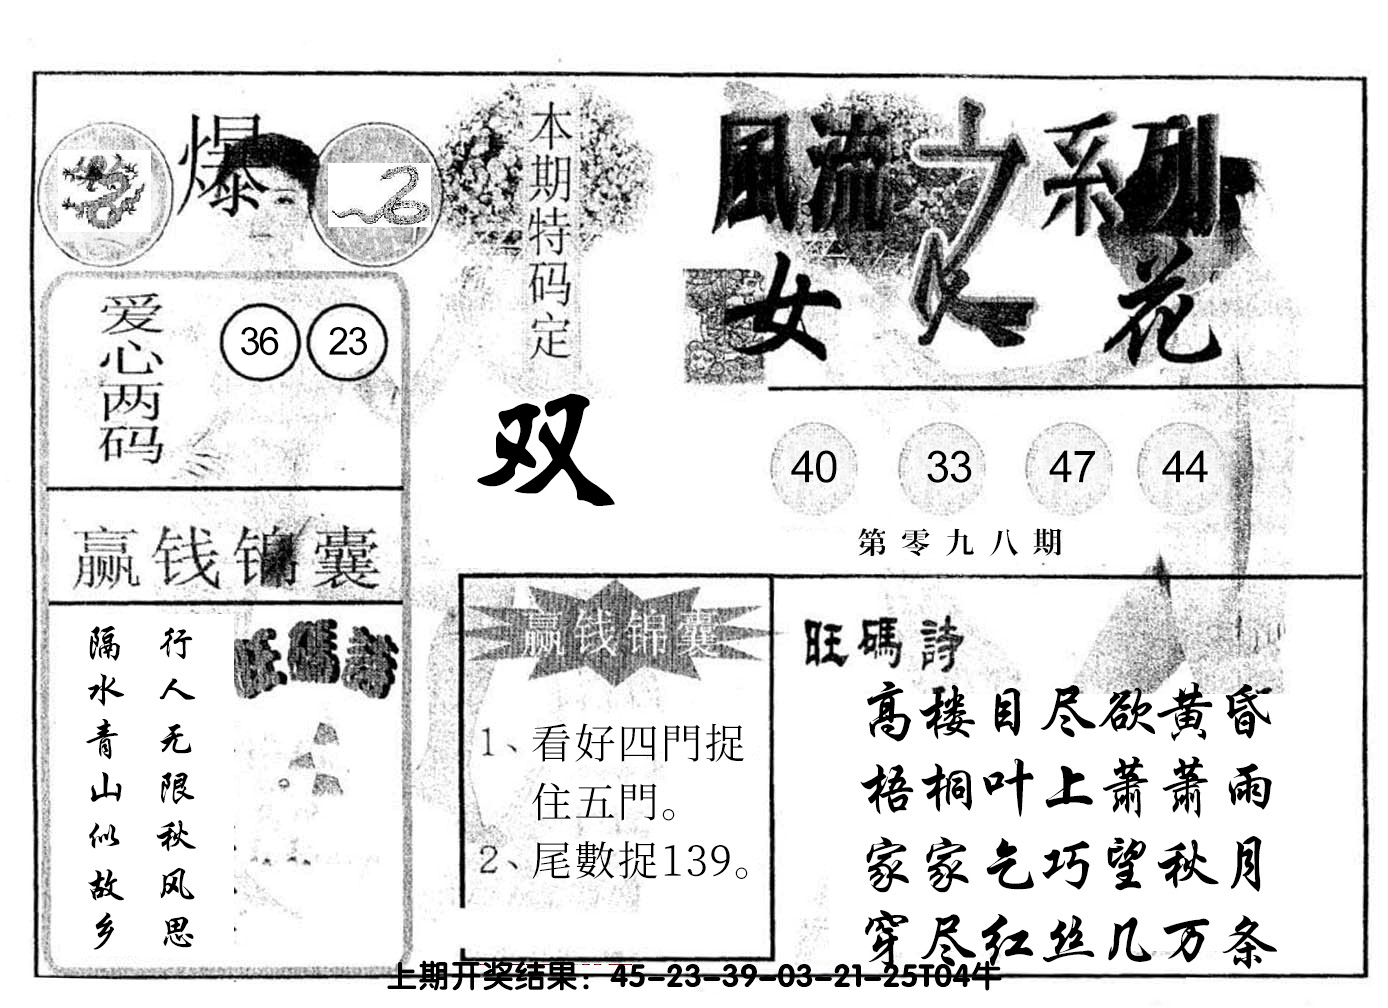 爆
本期特码定
双
風流之系列
女人花
爱心两码
36 23
40 33 47 44
第零九八期
赢钱锦囊
行人无限秋风思
隔水青山似故乡
旺碼詩
赢钱锦囊
1、看好四門捉
住五門。
2、尾數捉139。
旺碼詩
高楼目尽欲黄昏
梧桐叶上萧萧雨
家家乞巧望秋月
穿尽红丝几万条
上期开奖结果：45-23-39-03-21-25T04牛